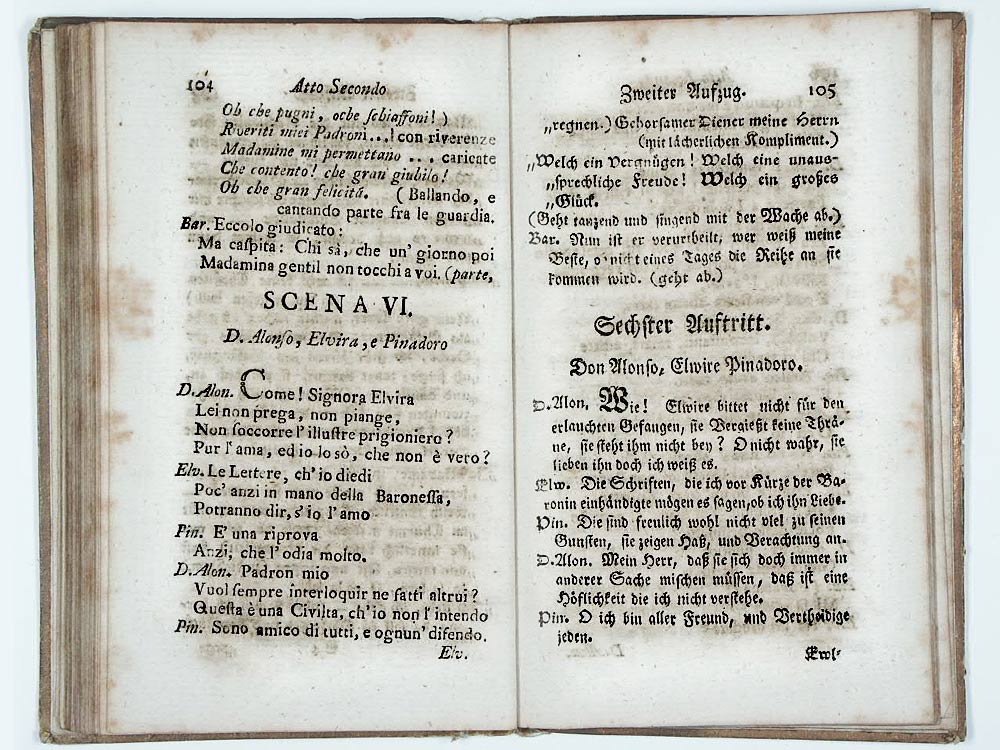 104 Atto Secondo
Oh che pugni, oche schiaffoni! )
Riveriti miei Padroni...! con riverenze
Madamine mi permettano ... caricate
Che contento! che gran giubilo!
Oh che gran felicità. ( Ballando, e
cantando parte fra le guardia.
Bar. Eccolo giudicato:
Ma caspita: Chi sà, che un' giorno poi
Madamina gentil non tocchi a voi. (parte,
SCENA VI.
D. Alonso, Elvira, e Pinadoro
D. Alon. Come! Signora Elvira
Lei non prega, non piange,
Non soccorre l' illustre prigioniero?
Pur l' ama, ed io lo sò, che non è vero?
Elv. Le Lettere, ch' io diedi
Poc' anzi in mano della Baronessa,
Potranno dir, s' io l' amo
Pin. E' una riprova
Anzi, che l' odia molto.
D. Alon. Padron mio
Vuol sempre interloquir ne fatti altrui?
Questa è una Civilta, ch' io non l' intendo
Pin. Sono amico di tutti, e ognun' difendo.
Elv.
Zweiter Aufzug. 105
„regnen.) Gehorsamer Diener meine Herrn
(mit lächerlichen Kompliment.)
„Welch ein Vergnügen! Welch eine unaus-
„sprechliche Freude! Welch ein großes
„Glück.
(Geht tanzend und singend mit der Wache ab.)
Bar. Nun ist er verurtheilt, wer weiß meine
Beste, ob nicht eines Tages die Reihe an sie
kommen wird. (geht ab.)
Sechster Auftritt.
Don Alonso, Elwire Pinadoro.
D. Alon. Wie! Elwire bittet nicht für den
erlauchten Gefangen, sie Vergießt keine Thrä-
ne, sie steht ihm nicht bey? O nicht wahr, sie
lieben ihn doch ich weiß es.
Elw. Die Schriften, die ich vor Kürze der Ba-
ronin einhändigte mögen es sagen, ob ich ihn Liebe.
Pin. Die sind freulich wohl nicht viel zu seinen
Gunsten, sie zeigen Haß, und Verachtung an.
D. Alon. Mein Herr, daß sie sich doch immer in
anderer Sache mischen müssen, daß ist eine
Höflichkeit die ich nicht verstehe.
Pin. O ich bin aller Freund, und Vertheidige
jeden.
Elwl-